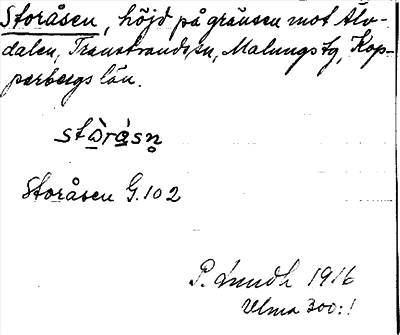 Storåsen, höjd på gränsen mot Älv-
dalen, Transtrands sn, Malungs tg, Kop-
parbergs län.
stòråsn̥
Storåsen G.102
P. Lundh 1916
Ulma 300:1